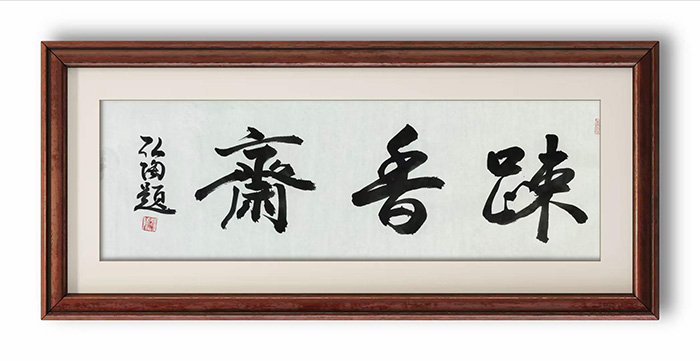 踈香齋
弘陶題